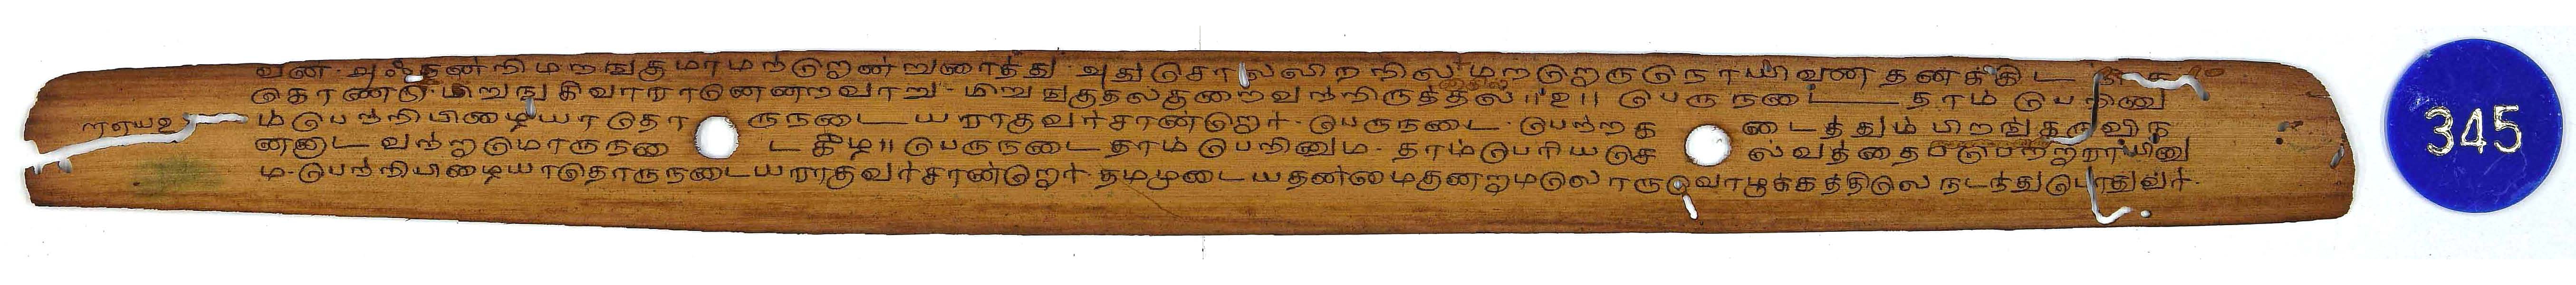 வன. அஃதன்றி மறங்குமாமந்டுறன்றுரைத்து. அது சொல்லிற நில மறடுறருடுநாயிவண தனக்கிட
கொண்டு மிறுங்கிவாரா ரென்றவாறு. மிறுங்குதல குறைவந்றிருத்தல் ॥ ௨ ॥ பெருநடை தாம் பெறினு
ம் பெற்றி பிழையாதொருநடையராகுவர் சான்றோர். பெருநடை. பெற்றக டைத்தும் பிறங்கருவி ந
னனாட வற்றுமொருநடை டகீழ் ॥ பெருநடை தாம் பெறினும. தாம் பெரிய செ ல்வத்தைப பெற்றாராயினு
ம. பெற்றி பிழையாதொருநடையராகுவர் சான்றோர். தமமுடைய தன்மை குனறுமலொருவொழுக்கத்திலே நடந்து போதுவர்.
ாஎய௨
345